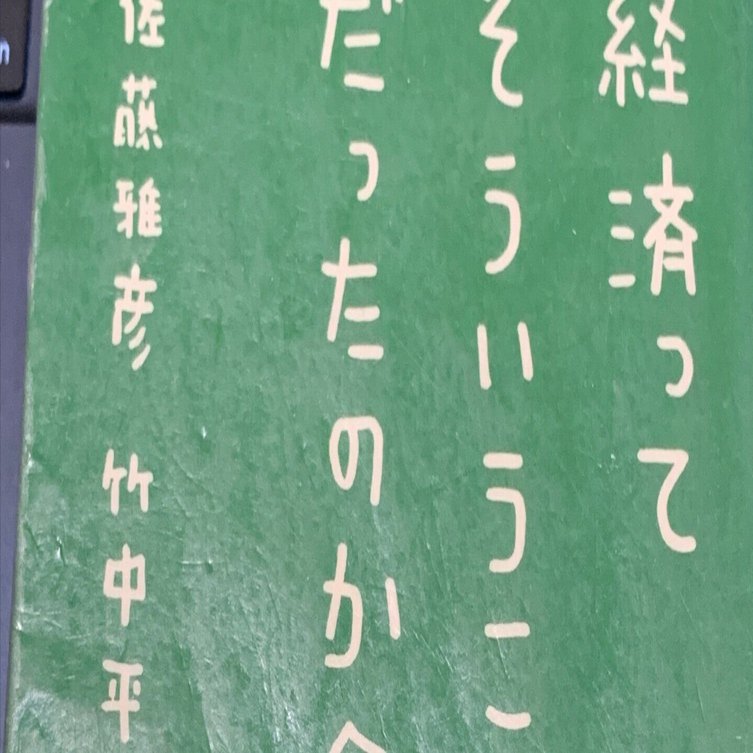 経済って
そういうこ
だったのか
佐藤雅彦 竹中平
n